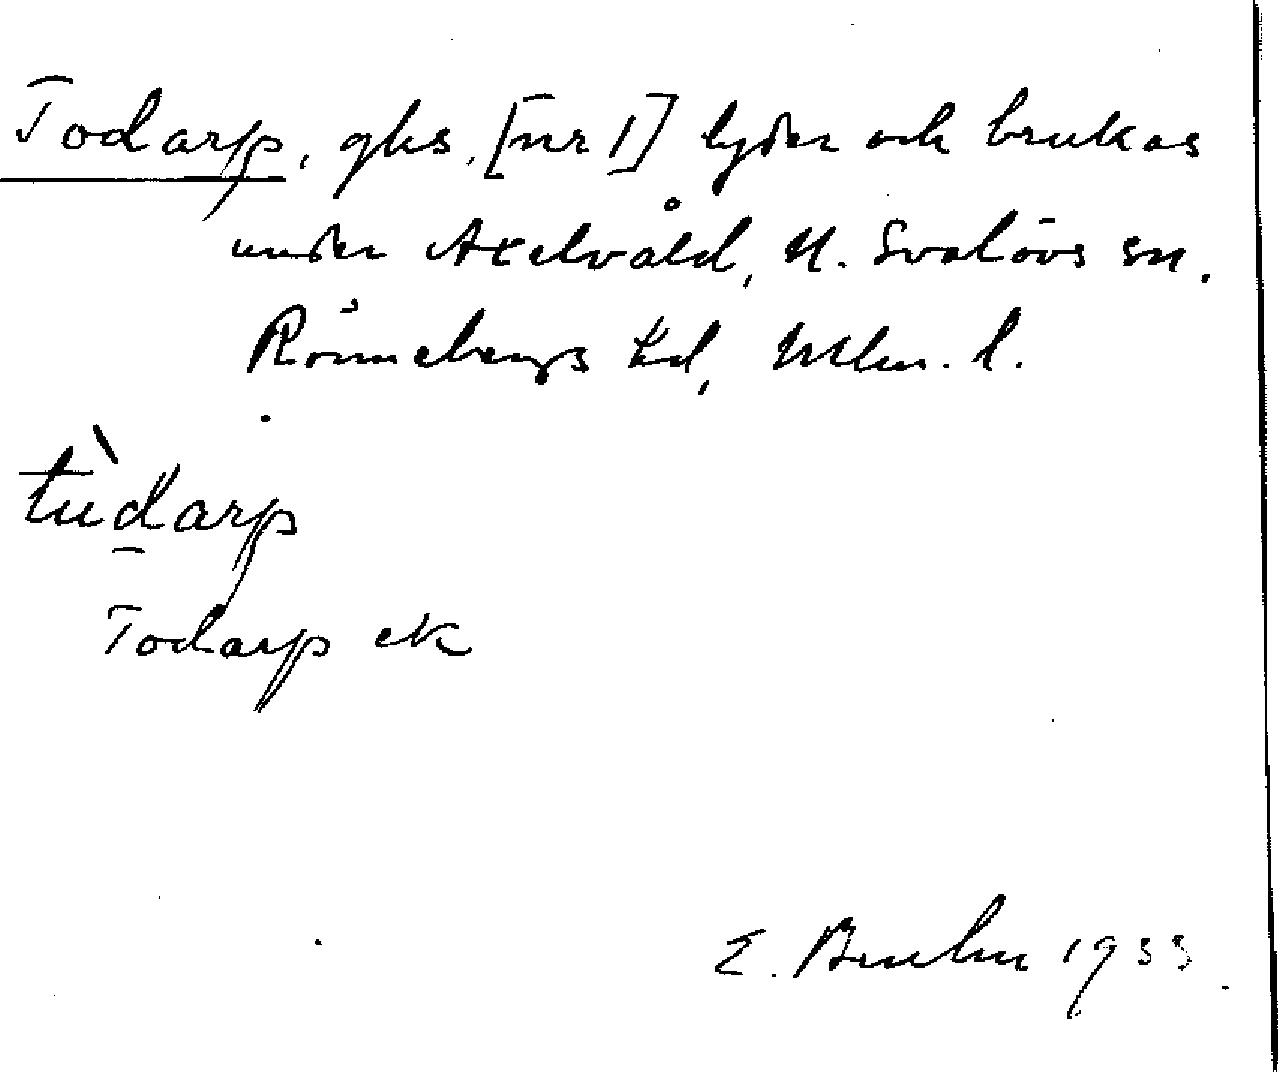 Todarp, ghs. [nr 1] lyder och brukas
under Axelvåld, N. Svalövs sn.
Rönnebergs hd, Mlm. l.
tùdarp
Todarp ek
E. Bruhn 1933